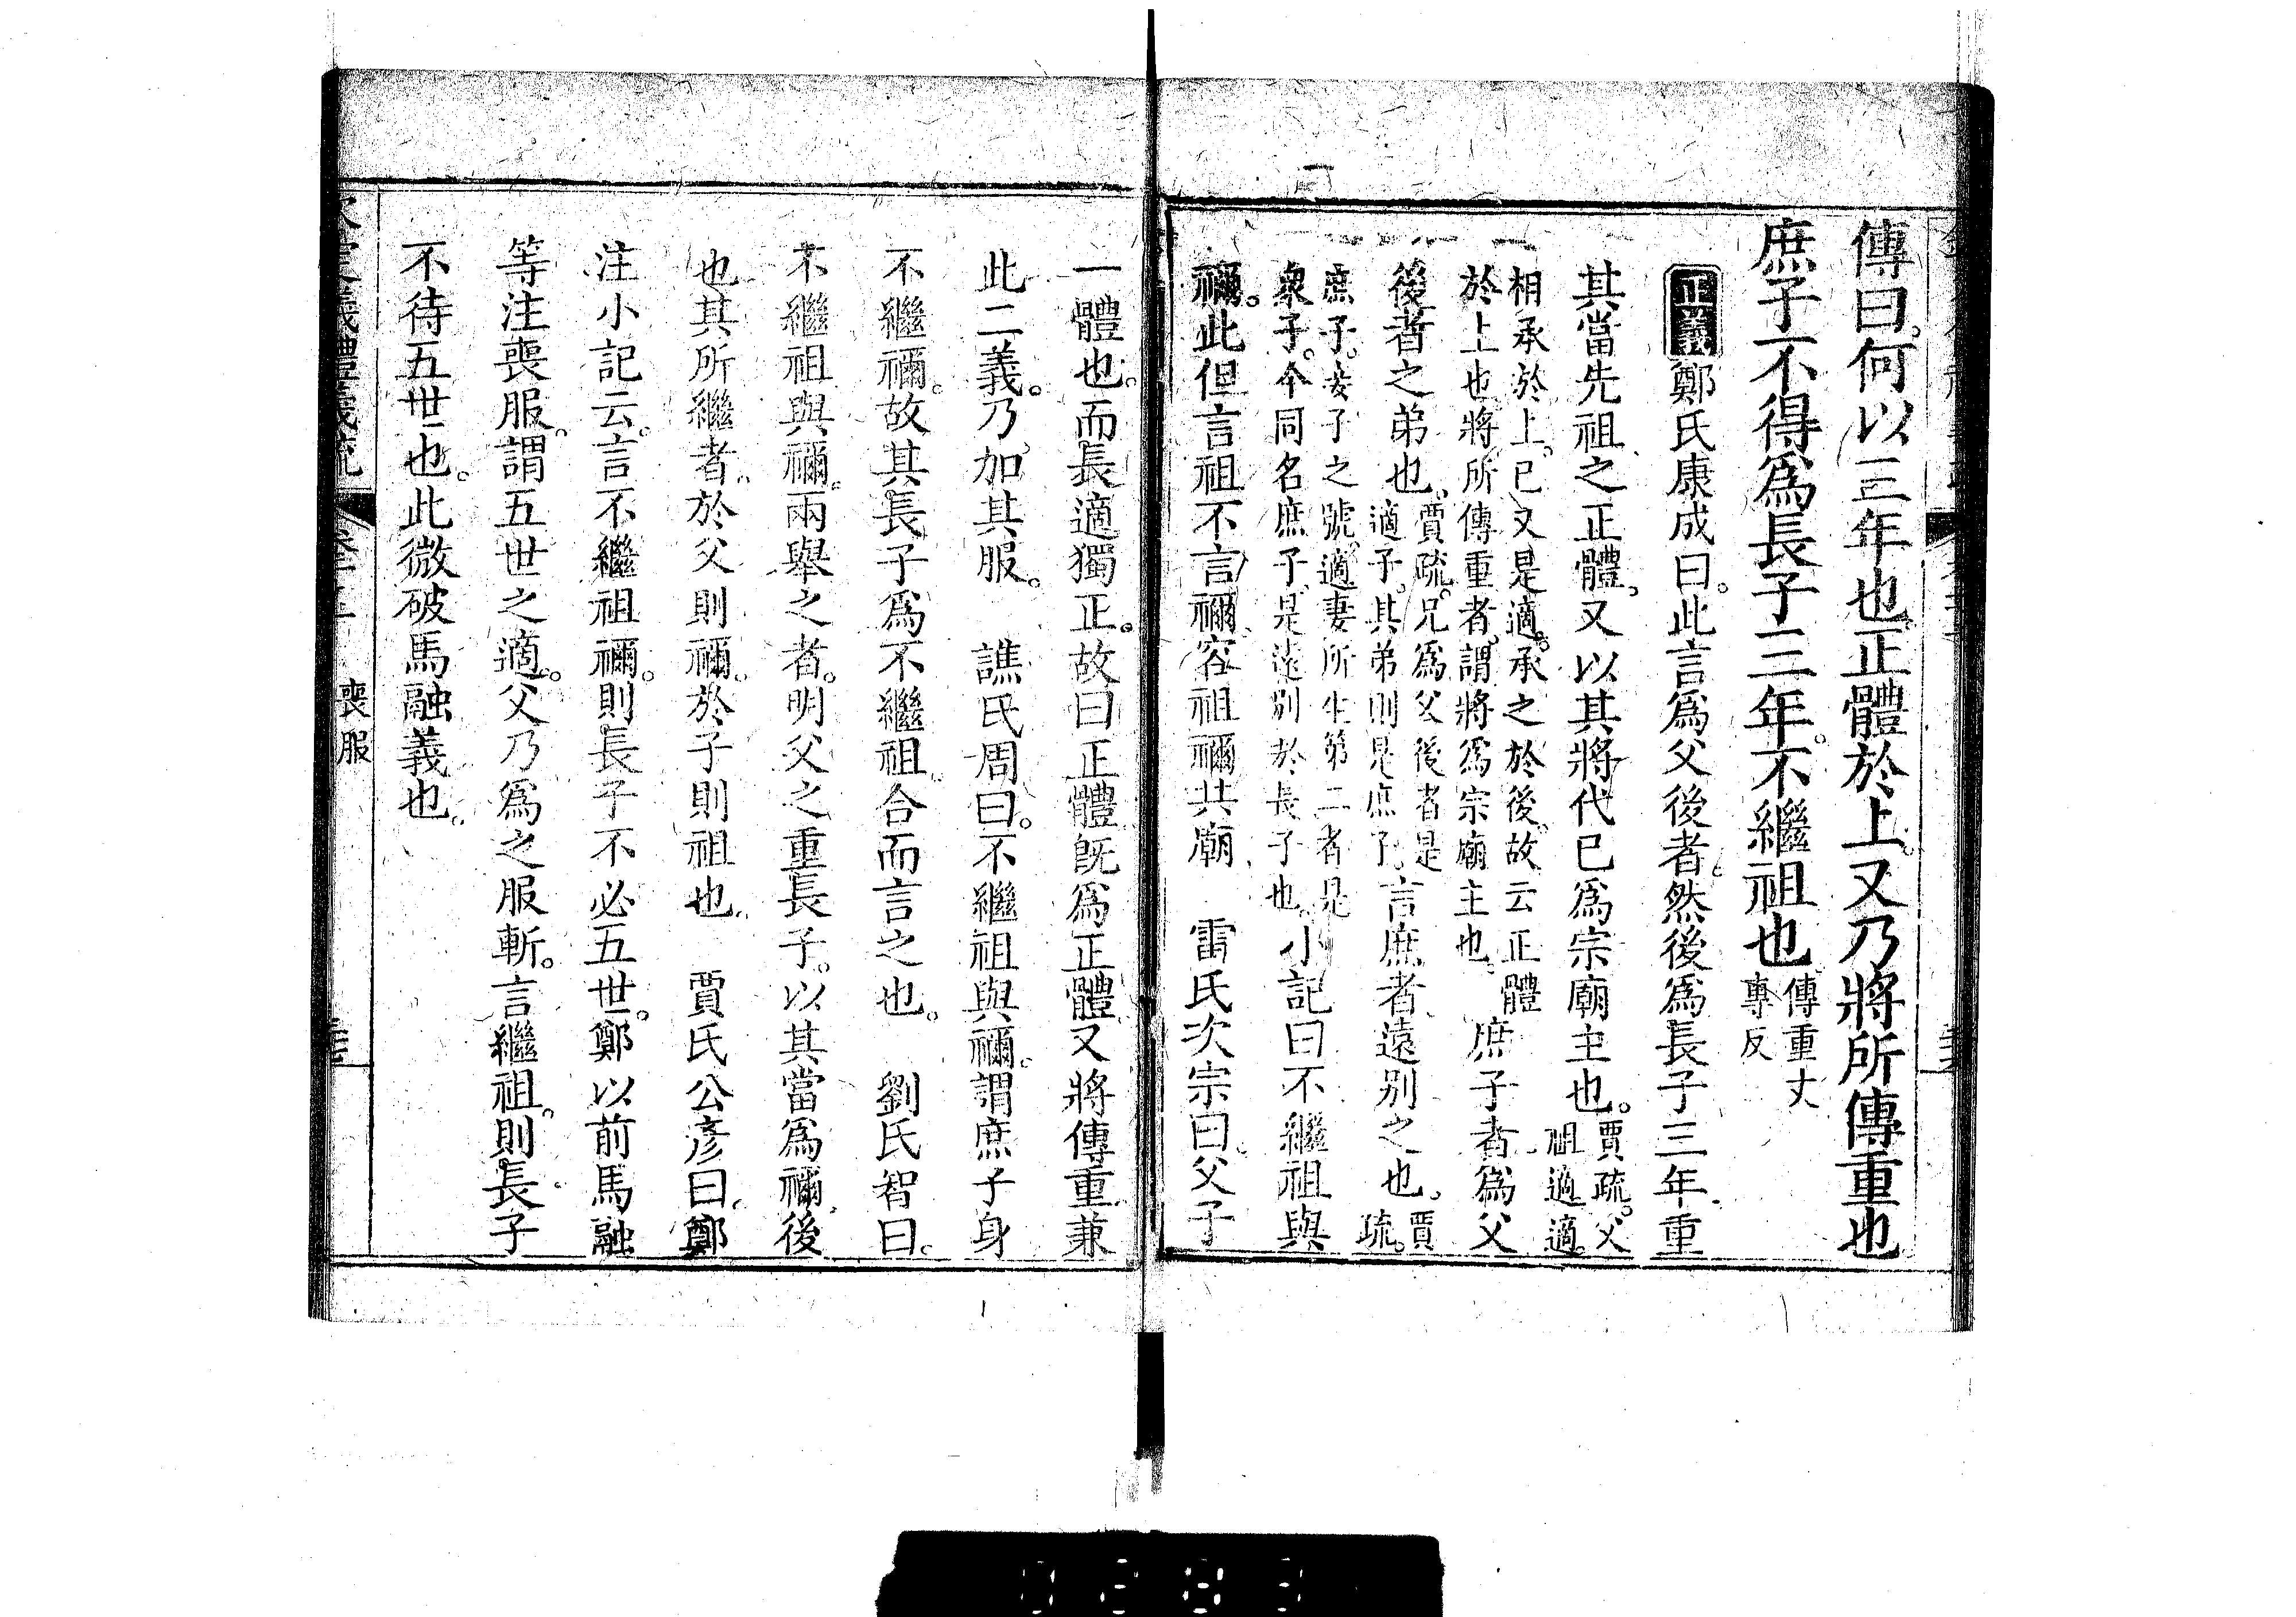 傳曰何以三年也正體於上又乃將所傳重也
庶子不得爲長子三年不繼祖也傳重丈
專反
正義鄭氏康成曰此言爲父後者然後爲長子三年重
其當先祖之正體又以其將代已爲宗廟主也賈疏父
祖適適
相承於上已又是適承之於後故云正體
於上也將所傳重者謂將爲宗廟主也庶子者爲父
後者之弟也賈疏兄爲父後者是
適子其弟則是庶子言庶者遠別之也賈
疏
庶子妾子之號適妻所生第二者是
衆子今同名庶子是遠別於長子也小記曰不繼祖與
禰此但言祖不言禰容祖禰共廟 雷氏次宗曰父子
一體也而長適獨正故曰正體旣爲正體又將傳重兼
此二義乃加其服 譙氏周曰不繼祖與禰謂庶子身
不繼禰故其長子爲不繼祖合而言之也 劉氏智曰
不繼祖與禰兩舉之者明父之重長子以其當爲禰後
也其所繼者於父則禰於子則祖也 賈氏公彥曰鄭
注小記云言不繼祖禰則長子不必五世鄭以前馬融
等注喪服謂五世之適父乃爲之服斬言繼祖則長子
不待五世也此微破馬融義也
喪服